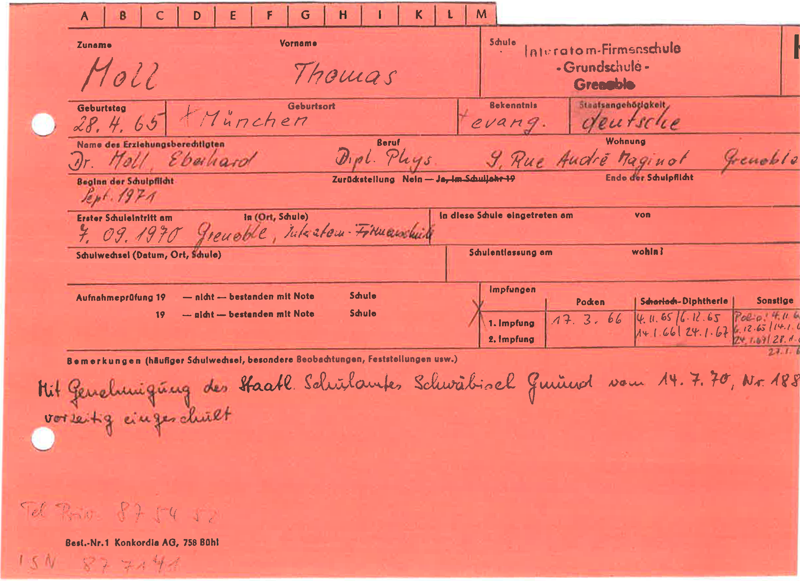 A B C D E F G H I K L M
Zuname Vorname Schule Interatom-Firmenschule
Moll Thomas -Grundschule-
Grenoble
Geburtstag Geburtsort Bekenntnis Staatsangehörigkeit
28.4.65 München evang. deutsche
Name des Erziehungsberechtigten Beruf Wohnung
Dr. Moll, Eberhard Dipl. Phys. 9, Rue André Maginot Grenoble
Beginn der Schulpflicht Zurückstellung Nein — Ja, im Schuljahr 19 Ende der Schulpflicht
Sept. 1971
Erster Schuleintritt am In (Ort, Schule) In diese Schule eingetreten am von
7.09.1970 Grenoble, Interatom-Firmenschule
Schulwechsel (Datum, Ort, Schule) Schulentlassung am wohin?
Aufnahmeprüfung 19 — nicht — bestanden mit Note Schule
19 — nicht — bestanden mit Note Schule
Impfungen Pocken Scharlach-Diphtherie Sonstige
1. Impfung 17.3.66 4.11.65/6.12.65 Polio: 4.11.6
2. Impfung 14.1.66/24.1.67 6.12.65/14.1.6
24.1.67/28.1.
27.1.6
Bemerkungen (häufiger Schulwechsel, besondere Beobachtungen, Feststellungen usw.)
Mit Genehmigung des Staatl. Schulamtes Schwäbisch Gmünd vom 14.7.70, Nr. 188
vorzeitig eingeschult
Tel Priv. 87 54 52
Best.-Nr. 1 Konkordia AG, 758 Bühl
ISN 87 71 41